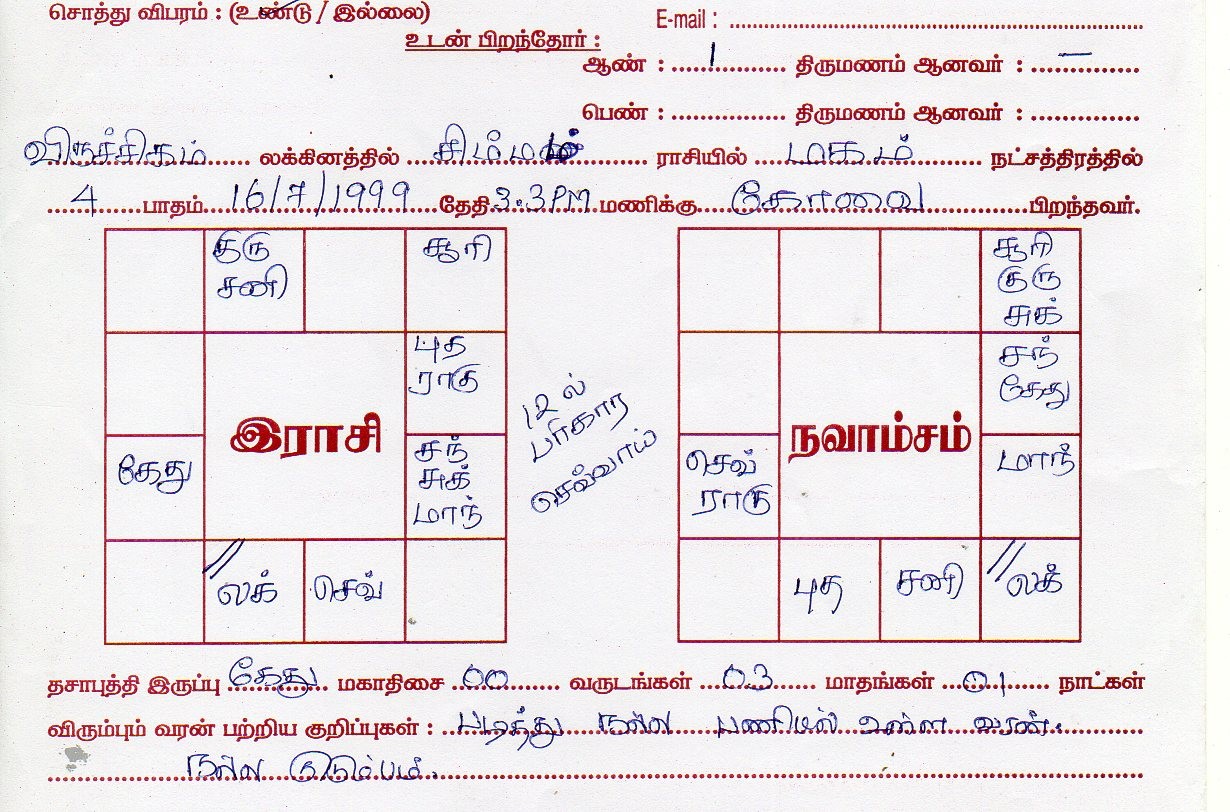 சொத்து விபரம் : (உண்டு / இல்லை)
E-mail : ........................
உடன் பிறந்தோர் :
ஆண் : ....1.... திருமணம் ஆனவர் : ....—....
பெண் : ............ திருமணம் ஆனவர் : ............
விருச்சிகம் லக்கினத்தில் சிம்மம் ராசியில் மகம் நட்சத்திரத்தில்
4 பாதம் 16/7/1999 தேதி 3.3PM மணிக்கு கோவை பிறந்தவர்.
குரு
சனி
சூரி
புத
ராகு
இராசி
கேது
சந்
சுக்
மாந்
லக்
செவ்
12ல்
பரிகார
செவ்வாய்
சூரி
குரு
சுக்
சந்
கேது
நவாம்சம்
செவ்
ராகு
மாந்
புத
சனி
லக்
தசாபுத்தி இருப்பு கேது மகாதிசை 00 வருடங்கள் 03 மாதங்கள் 01 நாட்கள்
விரும்பும் வரன் பற்றிய குறிப்புகள் : படித்து நல்ல பணியில் உள்ள வரன்.
நல்ல குடும்பம்.